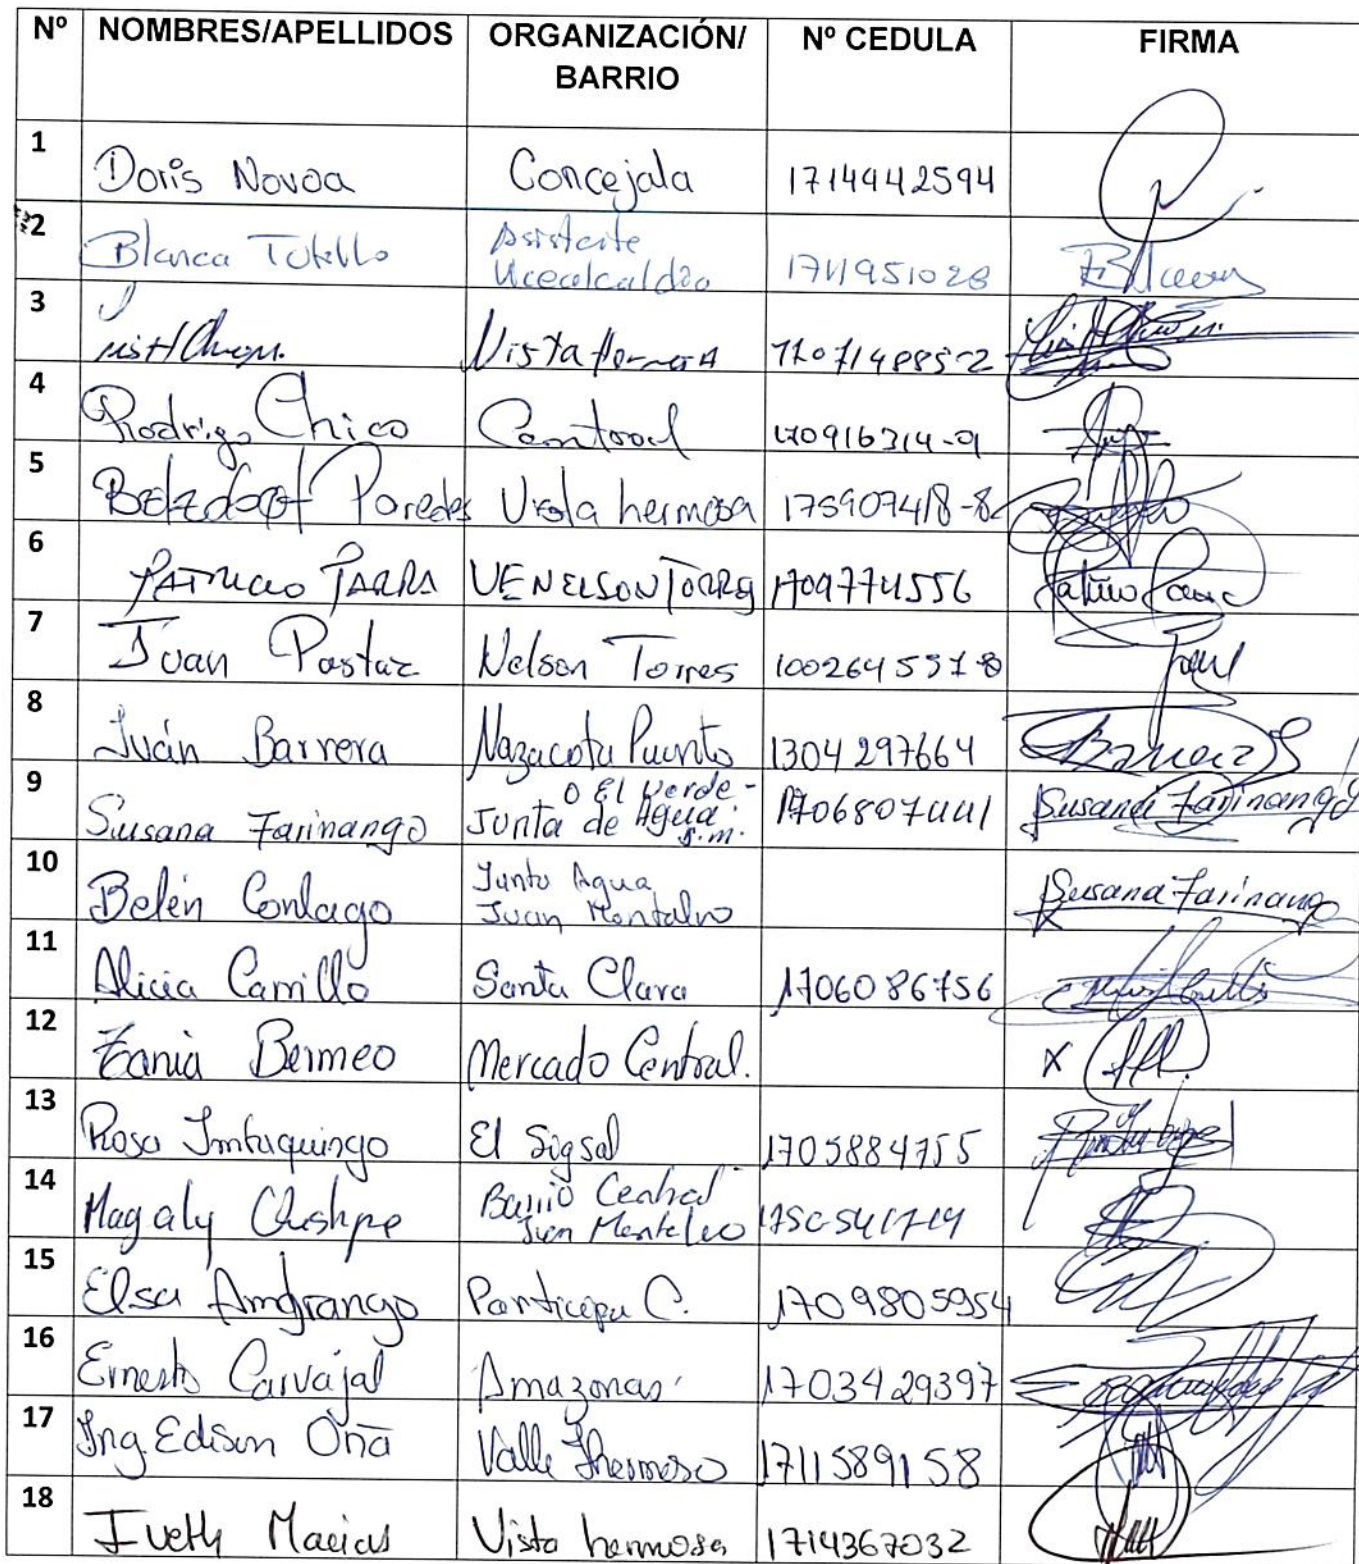 Nº NOMBRES/APELLIDOS ORGANIZACIÓN/ Nº CEDULA FIRMA
BARRIO
1 Doris Novoa Concejala 1714442594
2 Blanca Asistente
Vicealcaldía 1711951028
3 Vista
4 Rodrigo Chico Central 170916314-9
5 Paredes Vista hermosa 175907418-8
6 PATRICIO PARRA UE NELSON TORRES 1709774556
7 Juan Pastaz Nelson Torres 100264557-8
8 Iván Barrera Nazacota Puento 1304297664 Barrera
9 Susana Farinango O El Verde -
Junta de Agua
S.M. 1706807441 Susana Farinango
10 Belén Conlago Junta Agua
Juan Montalvo Susana Farinango
11 Alicia Carrillo Santa Clara 1706086756
12 Tania Bermeo Mercado Central. X
13 Rosa Imbaquingo El Sigsal 1705884755
14 Magaly Quishpe Barrio Central
Juan Montalvo
15 Elsa Amgrango Participa C. 1709805954
16 Ernesto Carvajal Amazonas 1703429397
17 Ing. Edison Oña Valle Hermoso 1711589158
18 Iveth Macias Vista hermosa 1714367032